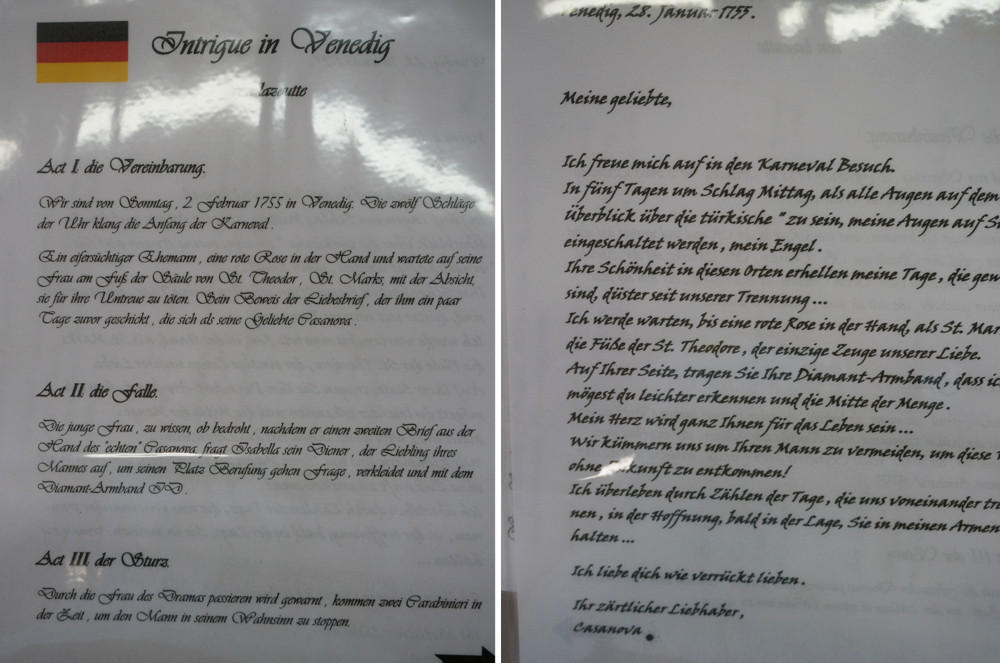 Intrigue in Venedig
Act I: die Vereinbarung.
Wir sind von Sonntag, 2. Februar 1755 in Venedig. Die zwölf Schläge
der Uhr klang die Anfang der Karneval.
Ein eifersüchtiger Ehemann, eine rote Rose in der Hand und wartete auf seine
Frau am Fuß der Säule von St. Theodor, St. Marks, mit der Absicht,
sie für ihre Untreue zu töten. Sein Beweis der Liebesbrief, der ihm ein paar
Tage zuvor geschickt, die sich als seine Geliebte Casanova.
Act II: die Falle.
Die junge Frau, zu wissen, ob bedroht, nachdem er einen zweiten Brief aus der
Hand des "echten" Casanova, fragt Isabella sein Diener, der Liebling ihres
Mannes auf, um seinen Platz Berufung gehen Frage, verkleidet und mit dem
Diamant-Armband ID.
Act III: der Sturz.
Durch die Frau des Dramas passieren wird gewarnt, kommen zwei Carabinieri in
der Zeit, um den Mann in seinem Wahnsinn zu stoppen.
Venedig, 28. Januar 1755.
Meine geliebte,
Ich freue mich auf in den Karneval Besuch.
In fünf Tagen um Schlag Mittag, als alle Augen auf dem
Überblick über die türkische " zu sein, meine Augen auf
eingeschaltet werden, mein Engel.
Ihre Schönheit in diesen Orten erhellen meine Tage, die
sind, düster seit unserer Trennung ...
Ich werde warten, bis eine rote Rose in der Hand, als St.
die Füße der St. Theodore, der einzige Zeuge unserer Liebe.
Auf Ihrer Seite, tragen Sie Ihre Diamant-Armband, dass
mögest du leichter erkennen und die Mitte der Menge.
Mein Herz wird ganz Ihnen für das Leben sein ...
Wir kümmern uns um Ihren Mann zu vermeiden, um diese
ohne zu entkommen!
Ich überleben durch Zählen der Tage, die uns voneinander
nen, in der Hoffnung, bald in der Lage, Sie in meinen Armen
halten ...
Ich liebe dich wie verrückt lieben.
Ihr zärtlicher Liebhaber,
Casanova.